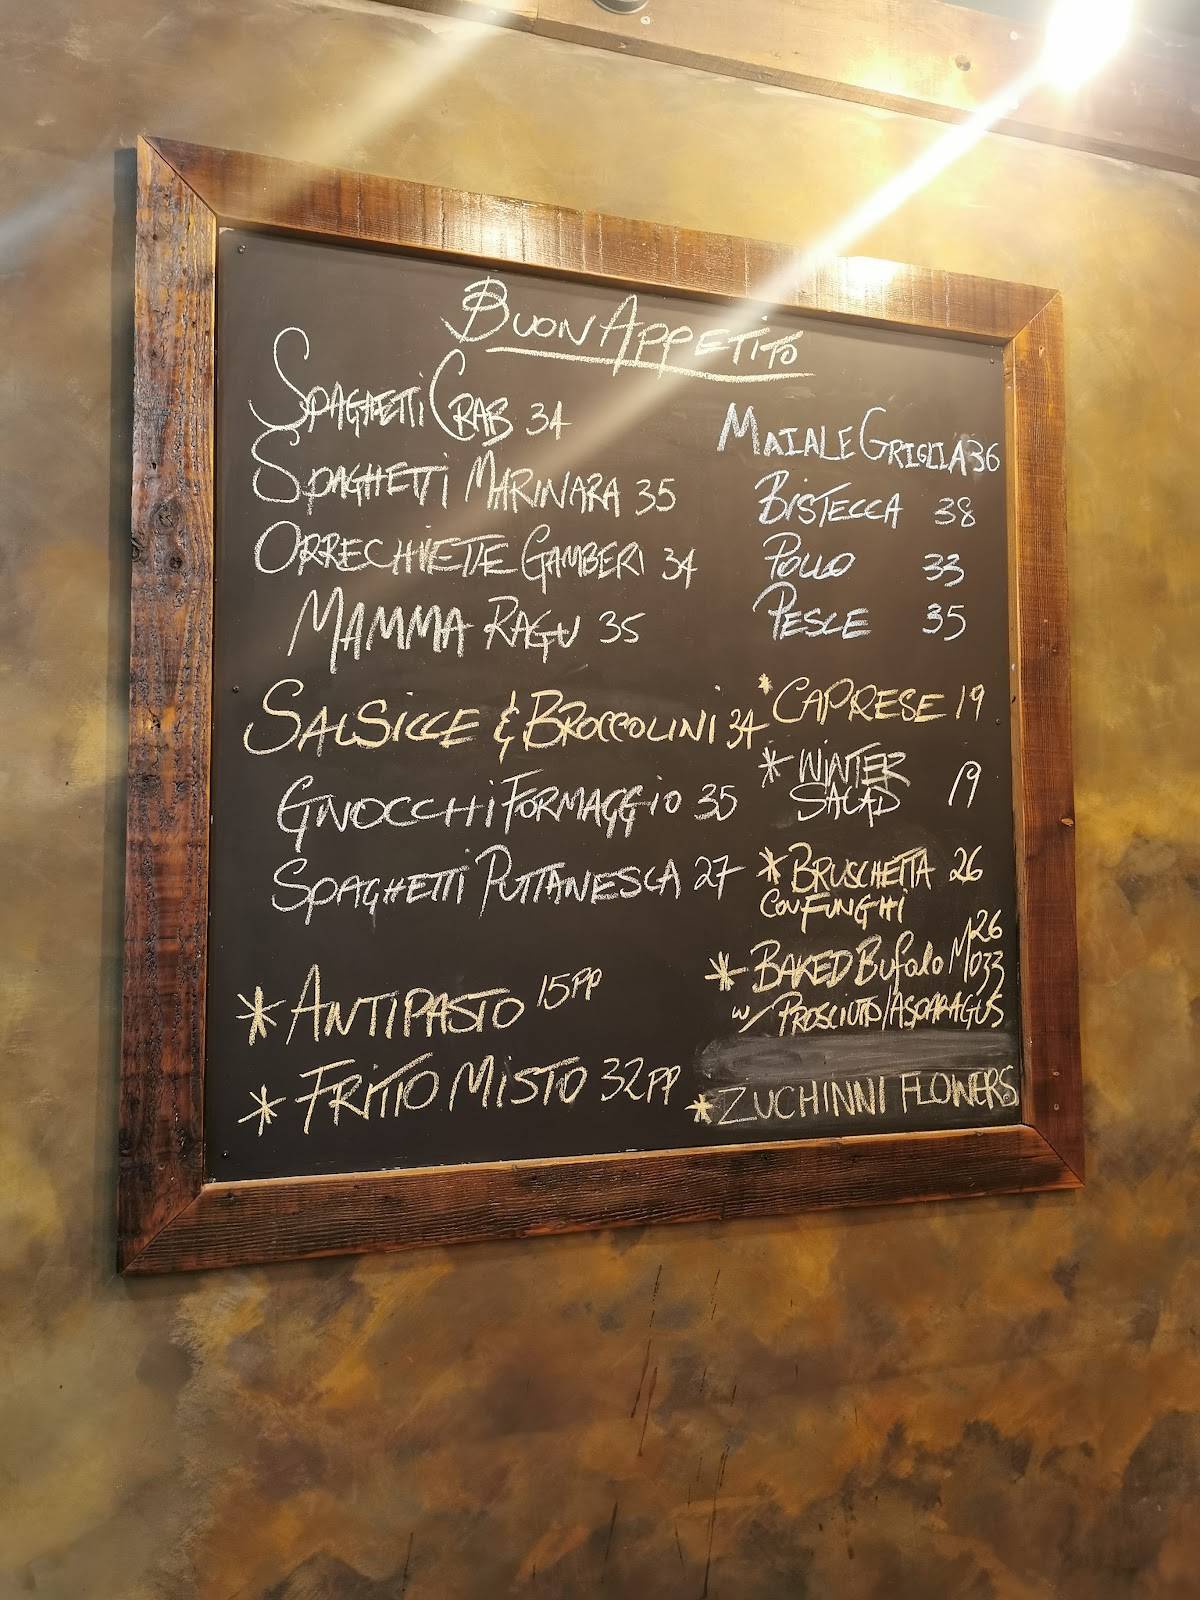 Buon Appetito
Spaghetti Crab 34
Spaghetti Marinara 35
Orrechiette Gamberi 34
Mamma Ragu 35
Salsicce & Broccolini 34
Gnocchi Formaggio 35
Spaghetti Puttanesca 27
* Antipasto 15pp
* Fritto Misto 32pp
Maiale Griglia 36
Bistecca 38
Pollo 33
Pesce 35
* Caprese 19
* Winter
Salad 19
* Bruschetta 26
Con Funghi
* Baked Bufalo Mozz 26
w/ Prosciutto/Asparagus
* Zuchinni Flowers